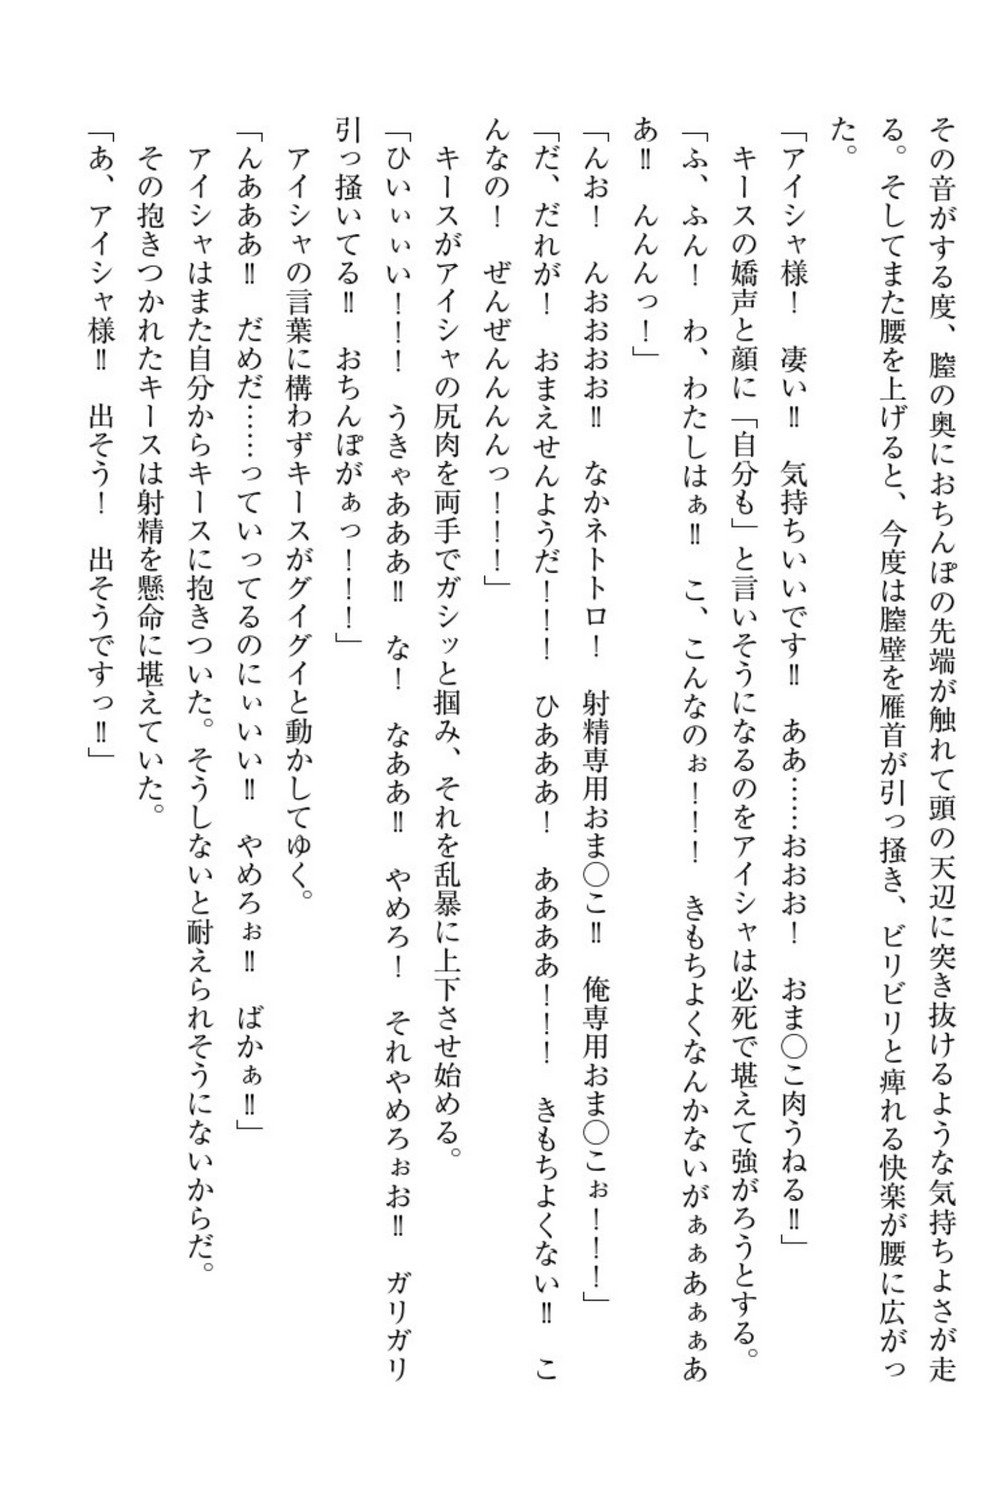 その音がする度、膣の奥におちんぽの先端が触れて頭の天辺に突き抜けるような気持ちよさが走
る。そしてまた腰を上げると、今度は膣壁を雁首が引っ掻き、ビリビリと痺れる快楽が腰に広がっ
た。
「アイシャ様！　凄い‼　気持ちいいです‼　ああ……おおお！　おま〇こ肉うねる‼」
キースの嬌声と顔に「自分も」と言いそうになるのをアイシャは必死で堪えて強がろうとする。
「ふ、ふん！　わ、わたしはぁ‼　こ、こんなのぉ！！！　きもちよくなんかないがぁぁあぁぁあ
あ‼　んんんっ！」
「んお！　んおおおお‼　なかネトトロ！　射精専用おま〇こ‼　俺専用おま〇こぉ！！！」
「だ、だれが！　おまえせんようだ！！！　ひあああ！　ああああ！！！　きもちよくない‼　こ
んなの！　ぜんぜんんんんっ！！！」
キースがアイシャの尻肉を両手でガシッと掴み、それを乱暴に上下させ始める。
「ひいぃぃぃい！！！　うきゃあああ‼　な！　なああ‼　やめろ！　それやめろぉお‼　ガリガリ
引っ掻いてる‼　おちんぽがぁっ！！！」
アイシャの言葉に構わずキースがグイグイと動かしてゆく。
「んあああ‼　だめだ……っていってるのにぃいい‼　やめろぉ‼　ばかぁ‼」
アイシャはまた自分からキースに抱きついた。そうしないと耐えられそうにないからだ。
その抱きつかれたキースは射精を懸命に堪えていた。
「あ、アイシャ様‼　出そう！　出そうですっ‼」